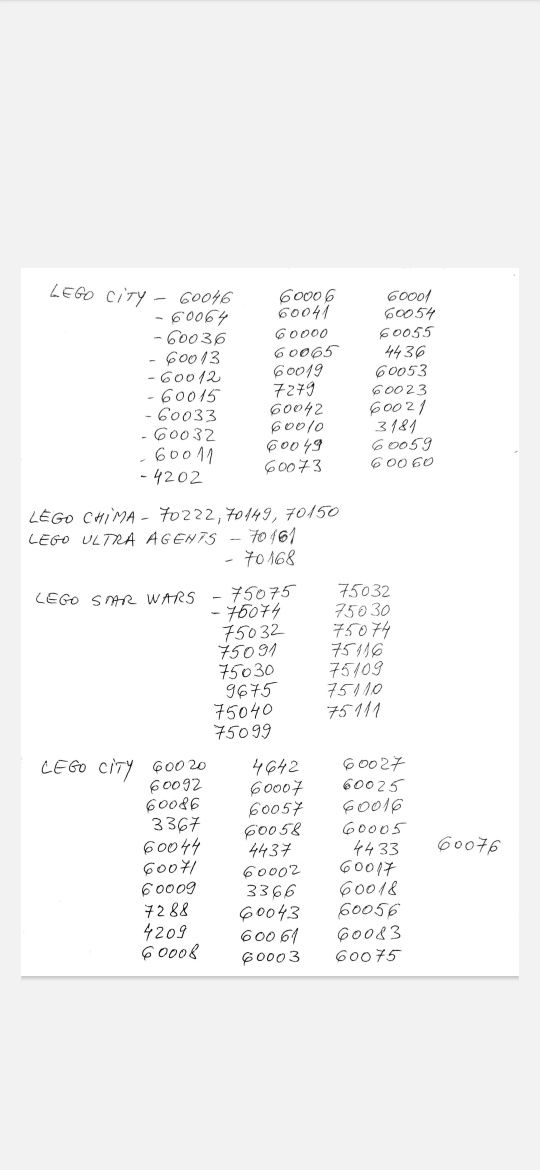 LEGO CITY - 60046 60006 60001
- 60064 60041 60054
- 60036 60000 60055
- 60013 60065 4436
- 60012 60019 60053
- 60015 7279 60023
- 60033 60042 60021
- 60032 60010 3181
- 60011 60049 60059
- 4202 60073 60060
LEGO CHIMA - 70222, 70149, 70150
LEGO ULTRA AGENTS - 70161
- 70168
LEGO STAR WARS - 75075 75032
- 75074 75030
75032 75074
75091 75116
75030 75109
9675 75110
75040 75111
75099
LEGO CITY 60020 4642 60027
60092 60007 60025
60086 60057 60016
3367 60058 60005
60044 4437 4433 60076
60071 60002 60017
60009 3366 60018
7288 60043 60056
4209 60061 60083
60008 60003 60075